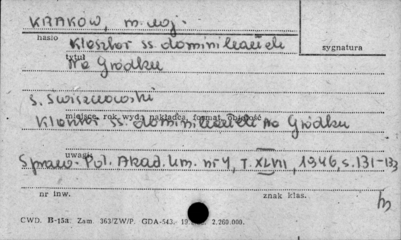 KRAKÓW, m. woj.
hasło
Klasztor ss. dominikanek
tytuł
na Gródku
sygnatura
S. Świszczowski
miejsce, rok wyd., nakładca, format, objętość
Klasztor ss. dominikanek na Gródku
uwagi
Spraw. Pol. Akad. Um. nr 4, T. XLVII, 1946, s. 131-133
nr inw.
znak klas.
CWD. B-15a. Zam. 363/ZW/P. GDA-543. 2.260.000.